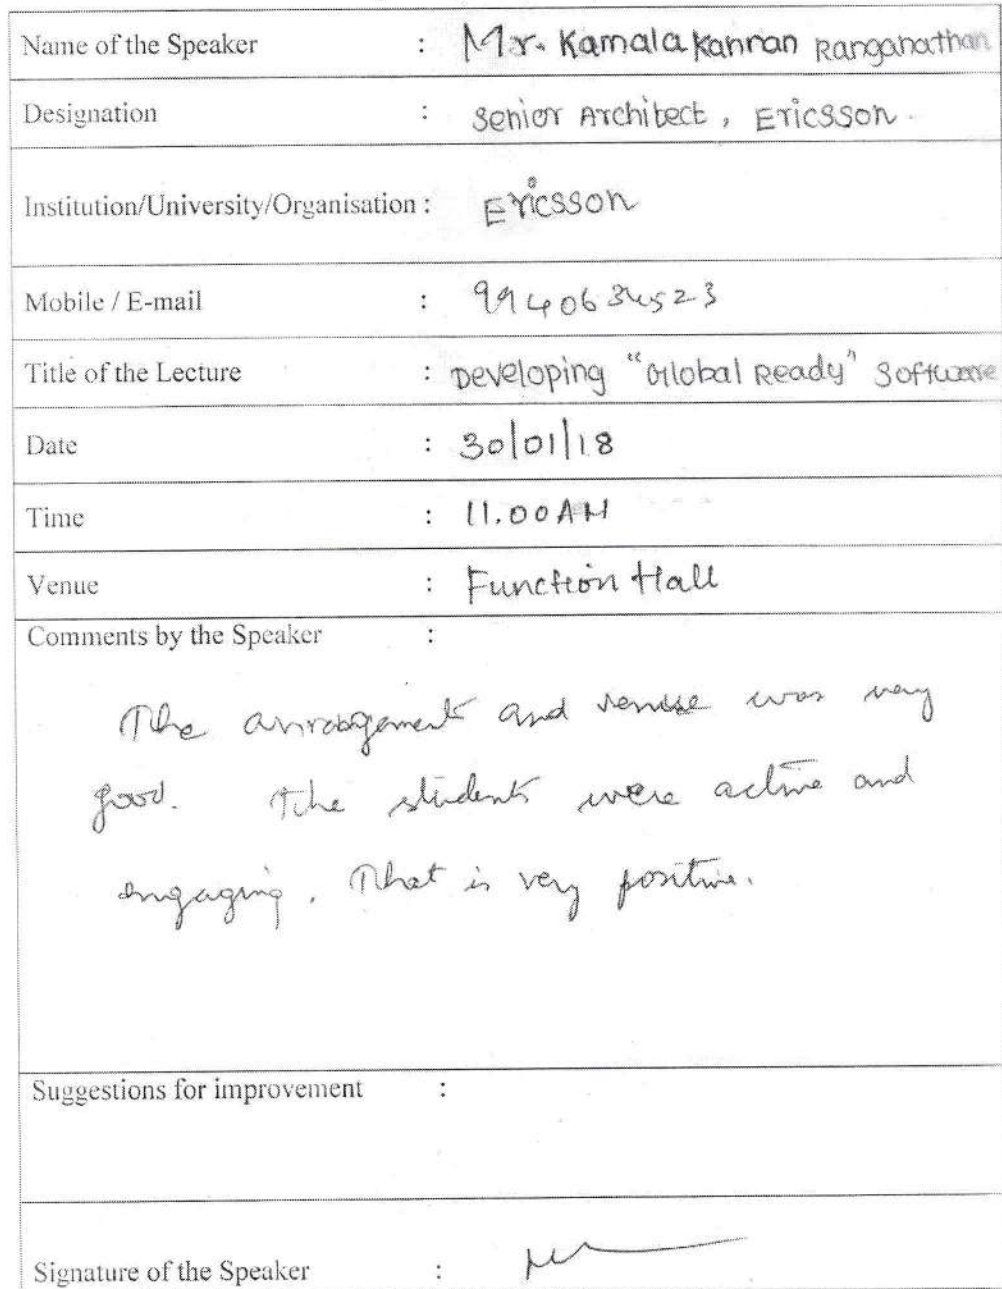 Name of the Speaker : Mr. Kamalakannan Ranganathan
Designation : Senior Architect, Ericsson.
Institution/University/Organisation : Ericsson
Mobile / E-mail : 9940634523
Title of the Lecture : Developing "Global Ready" Software
Date : 30/01/18
Time : 11.00 AM
Venue : Function Hall
Comments by the Speaker :
The arrangement and venue was very
good. The students were active and
engaging. That is very positive.
Suggestions for improvement :
Signature of the Speaker :